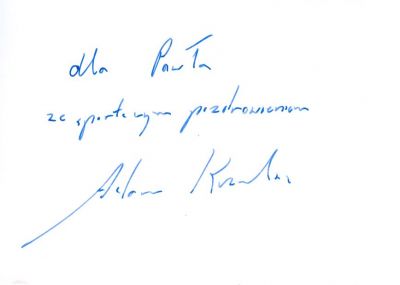 dla Pawła
ze sportowym pozdrowieniem
Adam